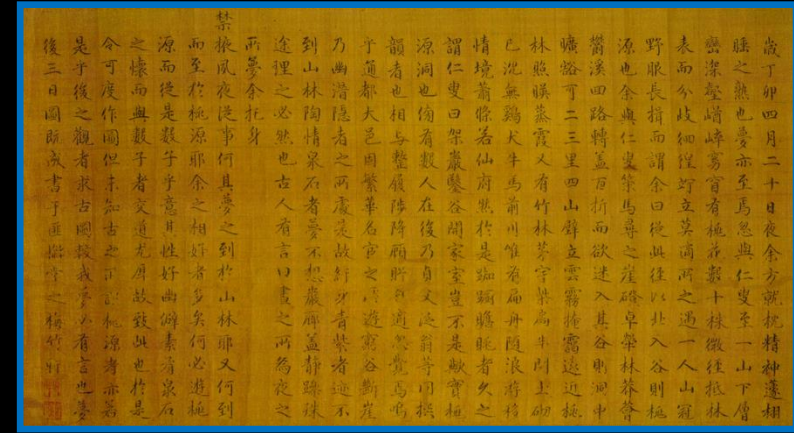 歲丁卯四月二十日夜余方就枕精神蘧栩
睡之熟也夢亦至焉忽與仁叟至一山下層
巒深壑崷崒窈窅有桃花數十株微徑抵林
表而分岐徊徨竚立莫適所之遇一人山冠
野服長揖而謂余曰從此徑以北入谷則桃
源也余與仁叟策馬尋之崖磴卓犖林莽薈
鬱溪回路轉蓋百折而欲迷入其谷則洞中
曠豁可二三里四山壁立雲霧掩靄遠近桃
林照暎蒸霞又有竹林茅宇柴扃半開土砌
已沈無鷄犬牛馬前川唯有扁舟隨浪游移
情境蕭條若仙府然於是踟躕瞻眺者久之
謂仁叟曰架巖鑿谷開家室豈不是歟實桃
源洞也傍有數人在後乃貞父泛翁等同撰
韻者也相与整履陟降顧眄自適忽覺焉嗚
乎通都大邑固繁華名宦之所遊窮谷斷崖
乃幽潛隱者之所處是故紆身青紫者迹不
到山林陶情泉石者夢不想巖廊盖靜躁殊
途理之必然也古人有言曰晝之所爲夜之
所夢余托身
禁掖夙夜從事何其夢之到於山林耶又何到
而至於桃源耶余之相好者多矣何必遊桃
源而從是數子乎意其性好幽僻素有泉石
之懷而與數子者交道尤厚故致此也於是
令可度作圖但未知古之所謂桃源者亦若
是乎後之觀者求古圖較我夢必有言也夢
後三日圖旣成書于匪懈堂之梅竹軒